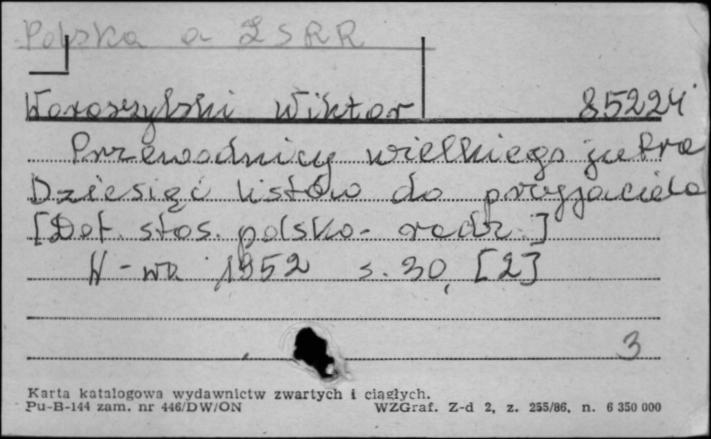 Polska a ZSRR
Woroszylski Wiktor 85224
Przewodnicy wielkiego jutra
Dziesięć listów do przyjaciela
[Dot. stos. polsko-radz.]
W-wa 1952 s. 30, [2]
3
Karta katalogowa wydawnictw zwartych i ciągłych.
Pu-B-144 zam. nr 446/DW/ON WZGraf. Z-d 2, z. 255/86, n. 6 350 000